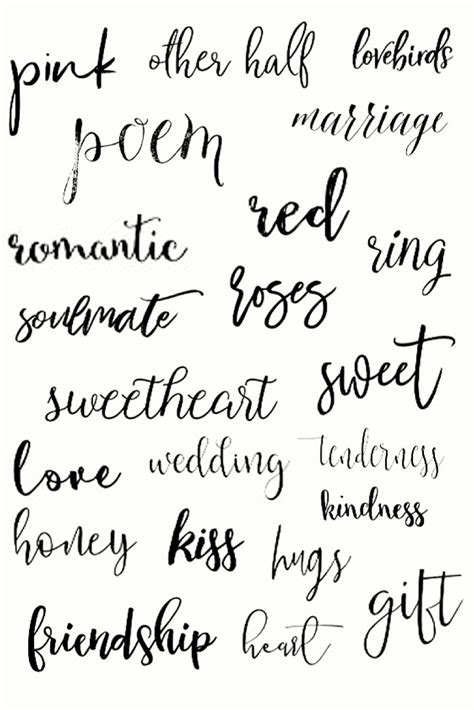 pink other half lovebirds
poem marriage
red
romantic ring
soulmate roses
sweetheart sweet
love wedding tenderness
kindness
honey kiss hugs
gift
friendship heart